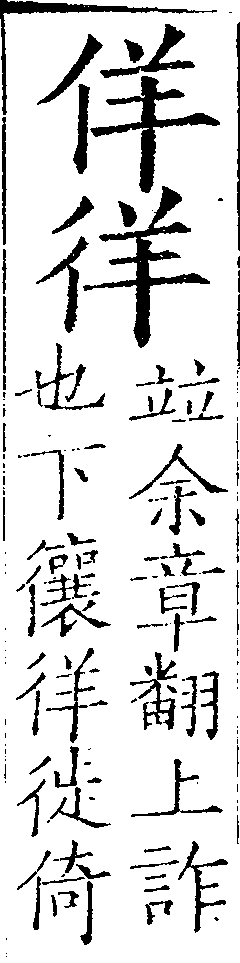 佯徉
竝余章翻上詐
也下忀徉徙倚